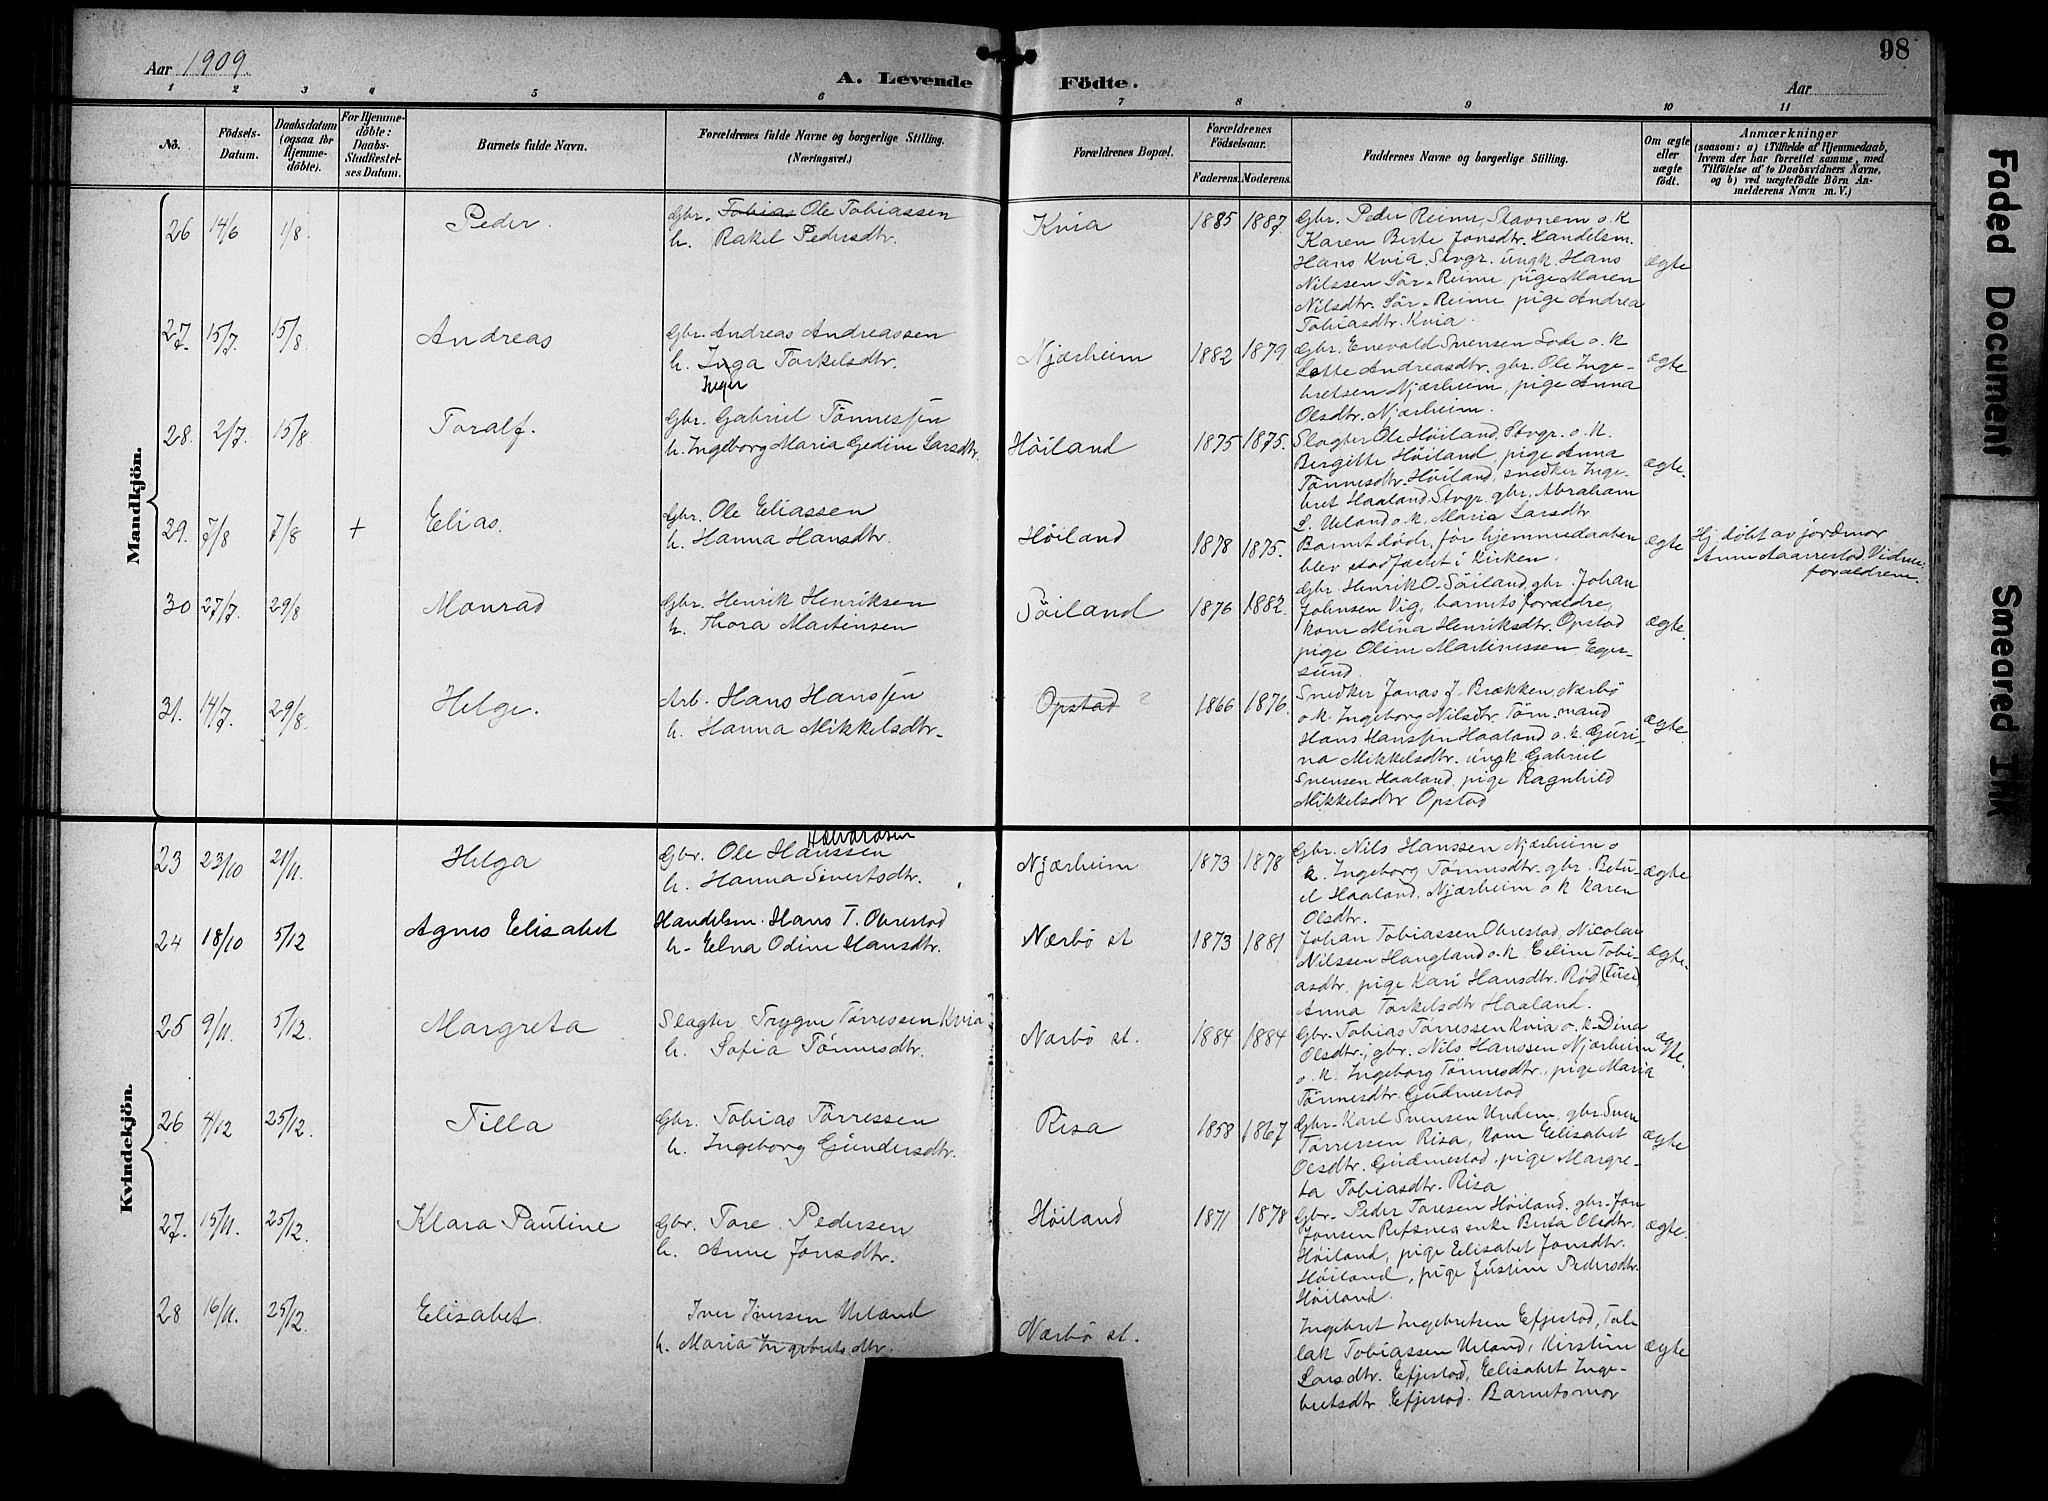 98
Aar 1909.
A. Levende Födte.
Aar
1 2 3 4 5 6 7 8 9 10 11
No.
Födsels-
Datum.
Daabsdatum
(ogsaa for
Hjemme-
döbte).
For Hjemme-
döbte:
Daabs-
Stadfæstel-
ses Datum.
Barnets fulde Navn.
Forældrenes fulde Navne og borgerlige Stilling.
(Næringsvei.)
Forældrenes Bopæl.
Forældrenes
Födselsaar.
Faderens. Moderens.
Faddernes Navne og borgerlige Stilling.
Om ægte
eller
uægte
födt.
Anmærkninger
(saasom: a) i Tilfælde af Hjemmedaab,
hvem der har forrettet samme, med
Tilföielse af to Daabsvidners Navne,
og b) ved uægtefödte Börn An-
melderens Navn m. V.)
Mandkjön.
26 14/6 1/8 Peder.
Gbr. Tobias Ole Tobiassen
h. Rakel Pedersdtr.
Kvia 1885 1887
Gbr. Peder Reime, Stavnem o. k
Karen Berte Jonsdtr. Handelsm.
Hans Kvia, Stvgr. ungk. Hans
Nilssen Sör-Reime pige Maren
Nilsdtr. Sör-Reime, pige Andrea
Tobiasdtr. Kvia.
ægte
27. 15/7. 15/8 Andreas
Gbr. Andreas Andreassen
h. Inga Torkelsdtr.
Inger
Njærheim 1882 1879
Gbr. Enevald Svensen Lode o. k
Lotte Andreasdtr. gbr. Ole Inge-
bretsen Njærheim, pige Anna
Olsdtr. Njærheim.
ægte
28. 2/7. 15/8 Toralf.
Gbr. Gabriel Tönnessen
h. Ingeborg Maria Gedine Larsdtr.
Höiland 1875 1875.
Slagter Ole Höiland, Stvgr. o. k.
Bergitte Höiland, pige Anna
Tönnesdtr. Höiland, snedker Inge-
bret Haaland Stvgr. gbr. Abraham
L. Ueland o. k. Maria Larsdtr
ægte.
29. 7/8 7/8 + Elias.
Gbr. Ole Eliassen
h. Hanna Hansdtr.
Höiland 1878 1875.
Barnet döde, för hjemmedaaben
blev stadfæstet i Kirken.
ægte
Hj. döbt av jordmor
Anne Aarrestad. Vidner
forældrene.
30 27/7. 29/8 Monrad
Gbr. Henrik Henriksen
h. Thora Martensen
Söiland 1876 1882.
Gbr Henrik O. Söiland, gbr. Johan
Johnsen Vig, barnets forældre,
kone Mina Henriksdtr. Opstad
pige Oline Martinessen Eger-
sund.
ægte.
31. 14/7. 29/8. Helge.
Arb. Hans Hanssen
h. Hanna Mikkelsdtr.
Opstad ? 1866 1876.
Snedker Jonas J. Brækken, Nærbö
o. k. Ingeborg Nilsdtr. Töm. mand
Hans Hanssen Haaland o. k. Guri-
na Mikkelsdtr. ungk. Gabriel
Svensen Haaland, pige Ragnhild
Mikkelsdtr Opstad
ægte.
Kvindekjön.
23 23/10 21/11. Helga
Halvardsen
Gbr. Ole Hanssen
h. Hanna Sivertsdtr.
Njærheim 1873 1878
Gbr. Nils Hanssen Njærheim o
k. Ingeborg Tönnesdtr. gbr. Betu-
el Haaland, Njærheim o. k Karen
Olsdtr.
ægte
24 18/10 5/12 Agnes Elisabet
Handelsm. Hans T. Obrestad
h. Elna Odine Hansdtr.
Nærbö st 1873 1881
Johan Tobiassen Obrestad, Nicolai
Nilssen Haugland o. k. Eline Tobi-
asdtr, pige Kari Hansdtr. Röd (Tuse)
Anna Torkelsdtr Haaland.
ægte.
25 9/11. 5/12. Margreta
Slagter Trygve Törressen Kvia
h. Sofia Tönnesdtr.
Nærbö st. 1884 1884
Gbr. Tobias Törressen Kvia o. k. Dina
Olsdtr., gbr. Nils Hanssen Njærheim
o. k. Ingeborg Tönnesdtr., pige Maria
Tönnesdtr. Gudmestad
ægte.
26 4/12 25/12. Tilla
Gbr. Tobias Törressen
h. Ingeborg Gundersdtr.
Risa 1858 1867
Gbr. Karl Svensen Undem, gbr. Sven
Törressen Risa, kone Elisabet
Olsdtr. Gudmestad. pige Margre-
ta Tobiasdtr. Risa
ægte
27. 15/11. 25/12. Klara Pauline
Gbr. Tore Pedersen
h. Anne Jonsdtr.
Höiland 1871 1878
Gbr. Peder Toresen Höiland, gbr. Jon
Jonsen Refsnes, enke Berta Olsdtr.
Höiland, pige Elisabet Jonsdtr.
Höiland, pige Justine Pedersdtr.
Höiland.
ægte.
28 16/11. 25/12. Elisabet.
Iver Iversen Ueland
h. Maria Ingebretsdtr.
Nærbö st.
Ingebret Ingebretsen Efjestad, Tol-
lak Tobiassen Ueland, Kirstine
Larsdtr. Efjestad, Elisabet Inge-
bretsdtr. Efjestad. Barnets mor
ægte
Faded Document
Smeared Ink